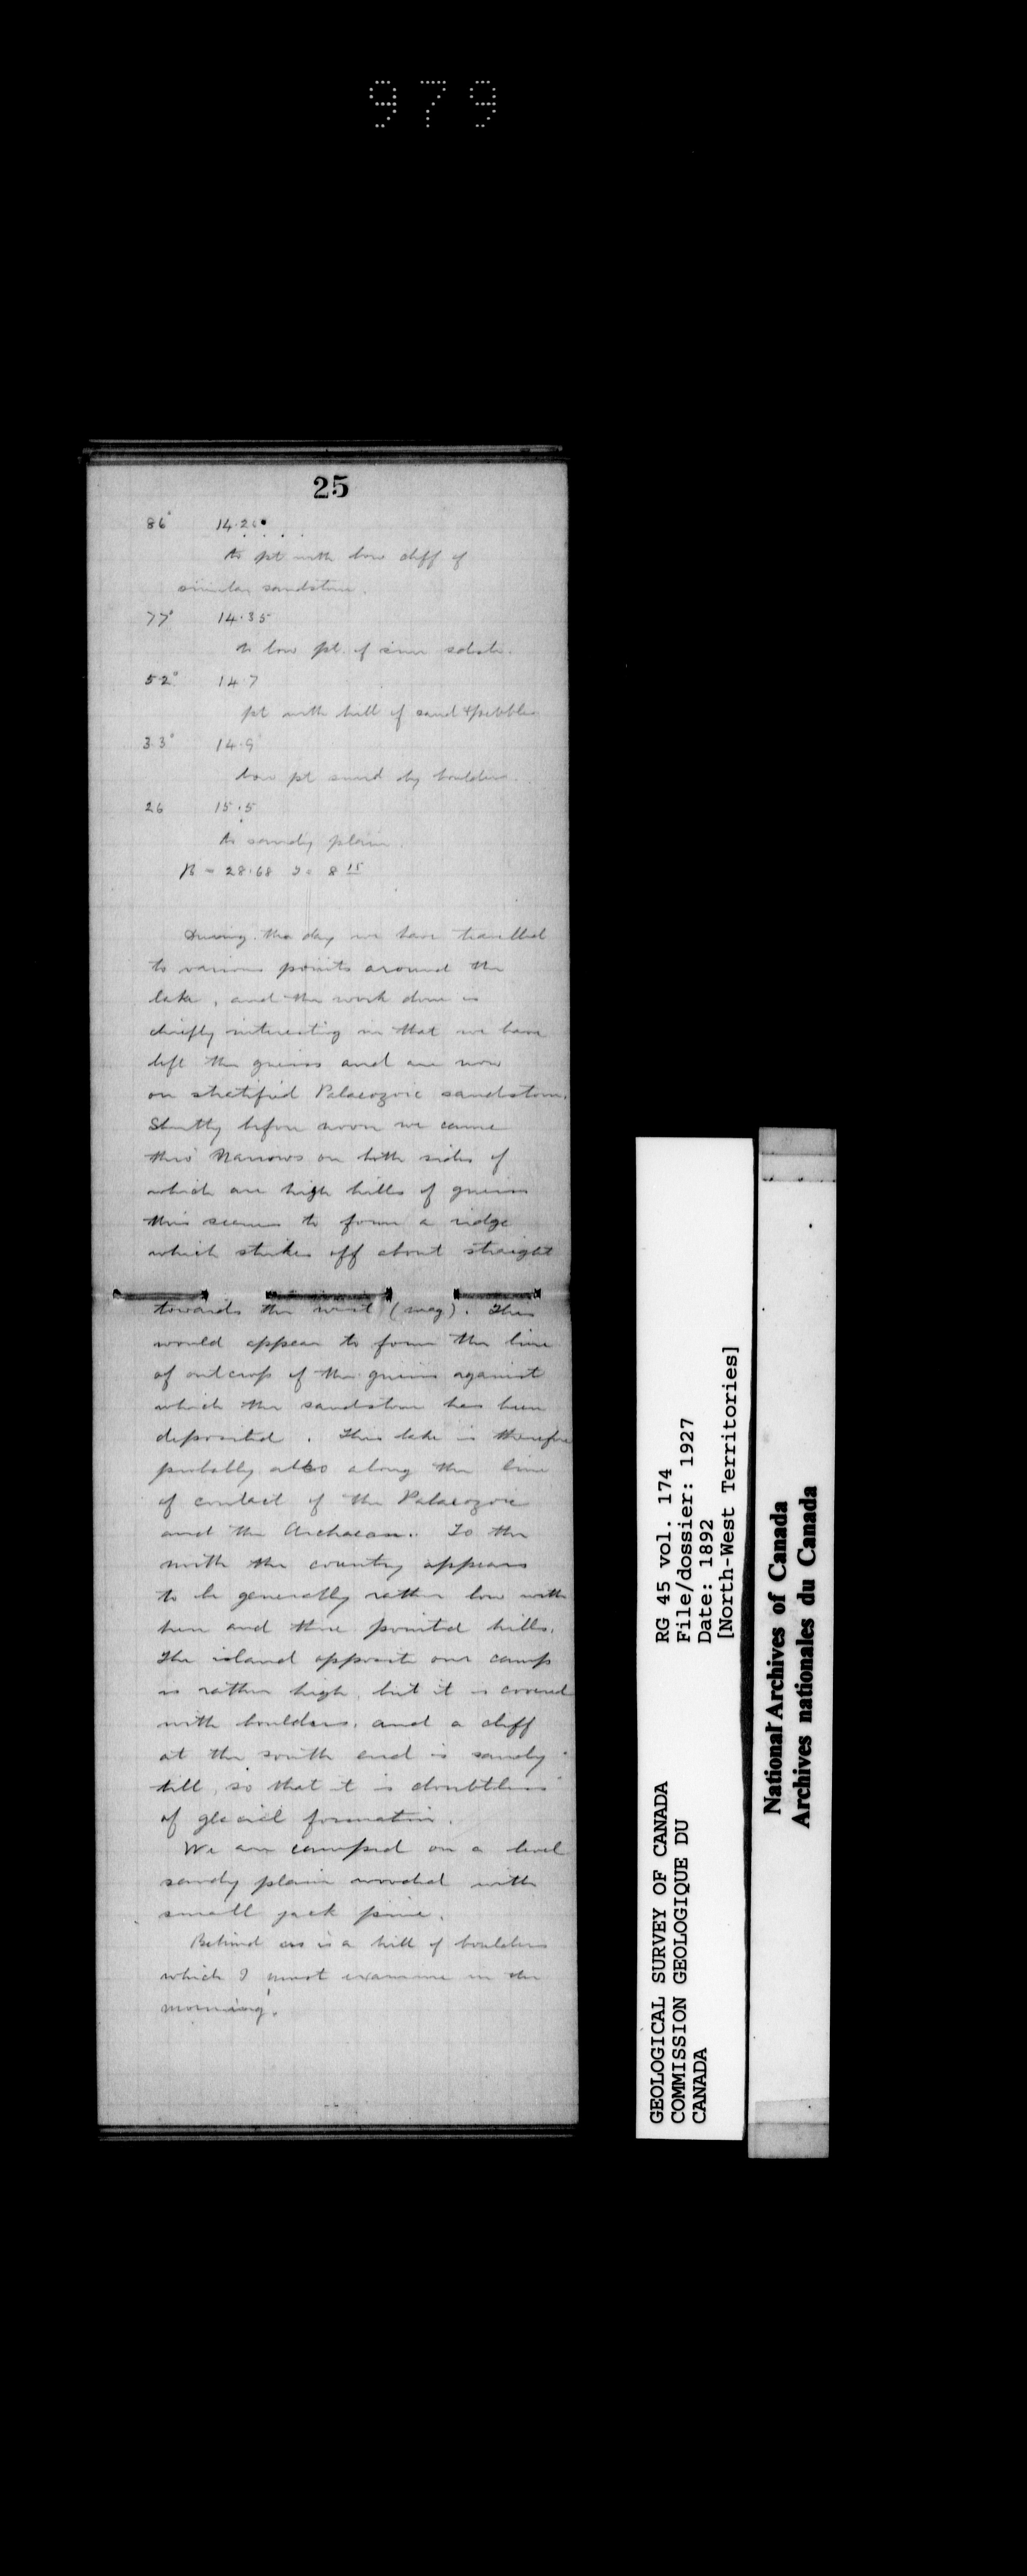 979
25
86° 14.2
to pt with low cliff of
similar sandstone.
77° 14.35
to low pt. of
52° 14.7
pt with hill of sand & pebbles
33° 14.9
low pt by boulders.
26 15.5
to sandy plain.
B = 28.68 8 15
During the day we have travelled
to various points around the
lake, and the work done is
chiefly interesting in that we have
left the gneiss and are now
on stratified Palaeozoic sandstone.
Shortly before noon we came
thro' Narrows on both sides of
which are high hills of gneiss
this seems to form a ridge
which strikes off about straight
towards the west (mag). This
would appear to form the line
of outcrop of the gneiss against
which the sandstone has been
deposited. This lake is therefore
probably also along the line
of contact of the Palaeozoic
and the Archaean. To the
north the country appears
to be generally rather low with
here and there pointed hills.
The island opposite our camp
is rather high, but it is covered
with boulders, and a cliff
at the south end is sandy
till, so that it is doubtless
of glacial formation.
We are camped on a level
sandy plain wooded with
small jack pine.
Behind us is a hill of boulders
which I must examine in the
morning.
GEOLOGICAL SURVEY OF CANADA
COMMISSION GEOLOGIQUE DU
CANADA
RG 45 vol. 174
File/dossier: 1927
Date: 1892
[North-West Territories]
National Archives of Canada
Archives nationales du Canada